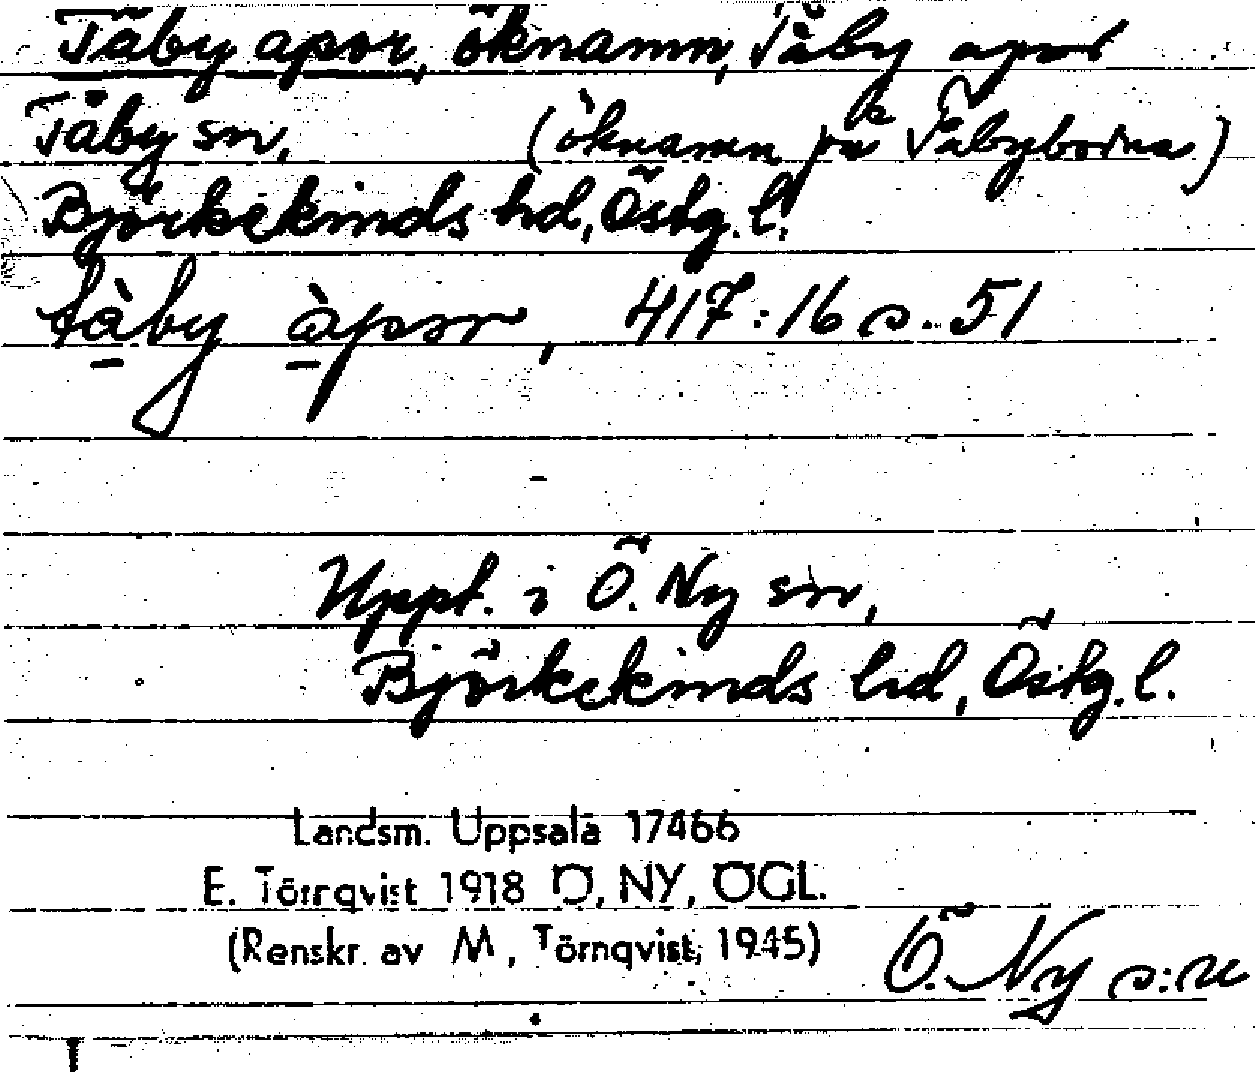 Täby apor, öknamn, Täby apor
Täby sn, (öknamn på Täbyborna)
Björkekinds hd, Östg.l.
tàby àpor, 417:16 s. 51
Uppt. i Ö. Ny sn,
Björkekinds hd, Östg.l.
Landsm. Uppsala 17466
E. Törnqvist 1918 Ö, NY, ÖGL.
(Renskr. av M, Törnqvist, 1945) Ö. Ny s:n